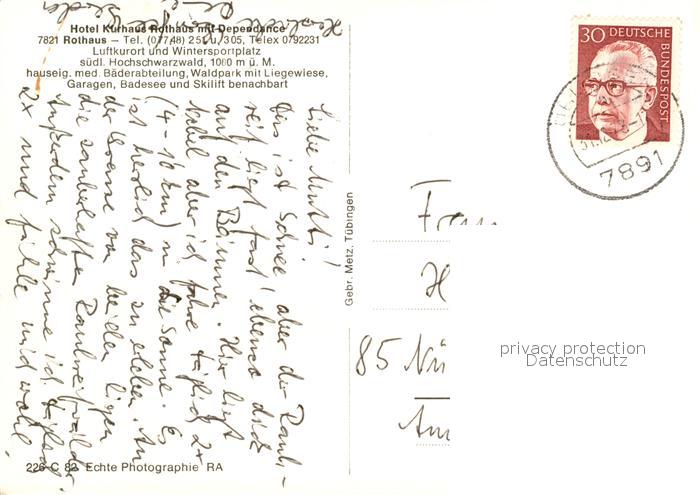 Hotel Kurhaus Rothaus mit Dependance
7821 Rothaus – Tel. (07748) 251 u. 305, Telex 0792231
Luftkurort und Wintersportplatz
südl. Hochschwarzwald, 1000 m ü. M.
hauseig. med. Bäderabteilung, Waldpark mit Liegewiese,
Garagen, Badesee und Skilift benachbart
Liebe Mutti!
Hier ist Schnee aber der Rauh-
reif liegt fast ebenso dick
auf den Bäumen. Hier liegt
Nebel aber ich fahre täglich 2x
(4-10 km) in die Sonne. Es
ist herrlich das zu erleben. An
der Sonne von beiden liegen
die zauberhaften Rauhreifwälder.
Außerdem schwimme ich täglich
2x und fühle mich wohl.
Herzliche
226 C 82 Echte Photographie RA
Gebr. Metz, Tübingen
30 DEUTSCHE
BUNDESPOST
7891
Frau
H
85 Nü
Am
privacy protection
Datenschutz